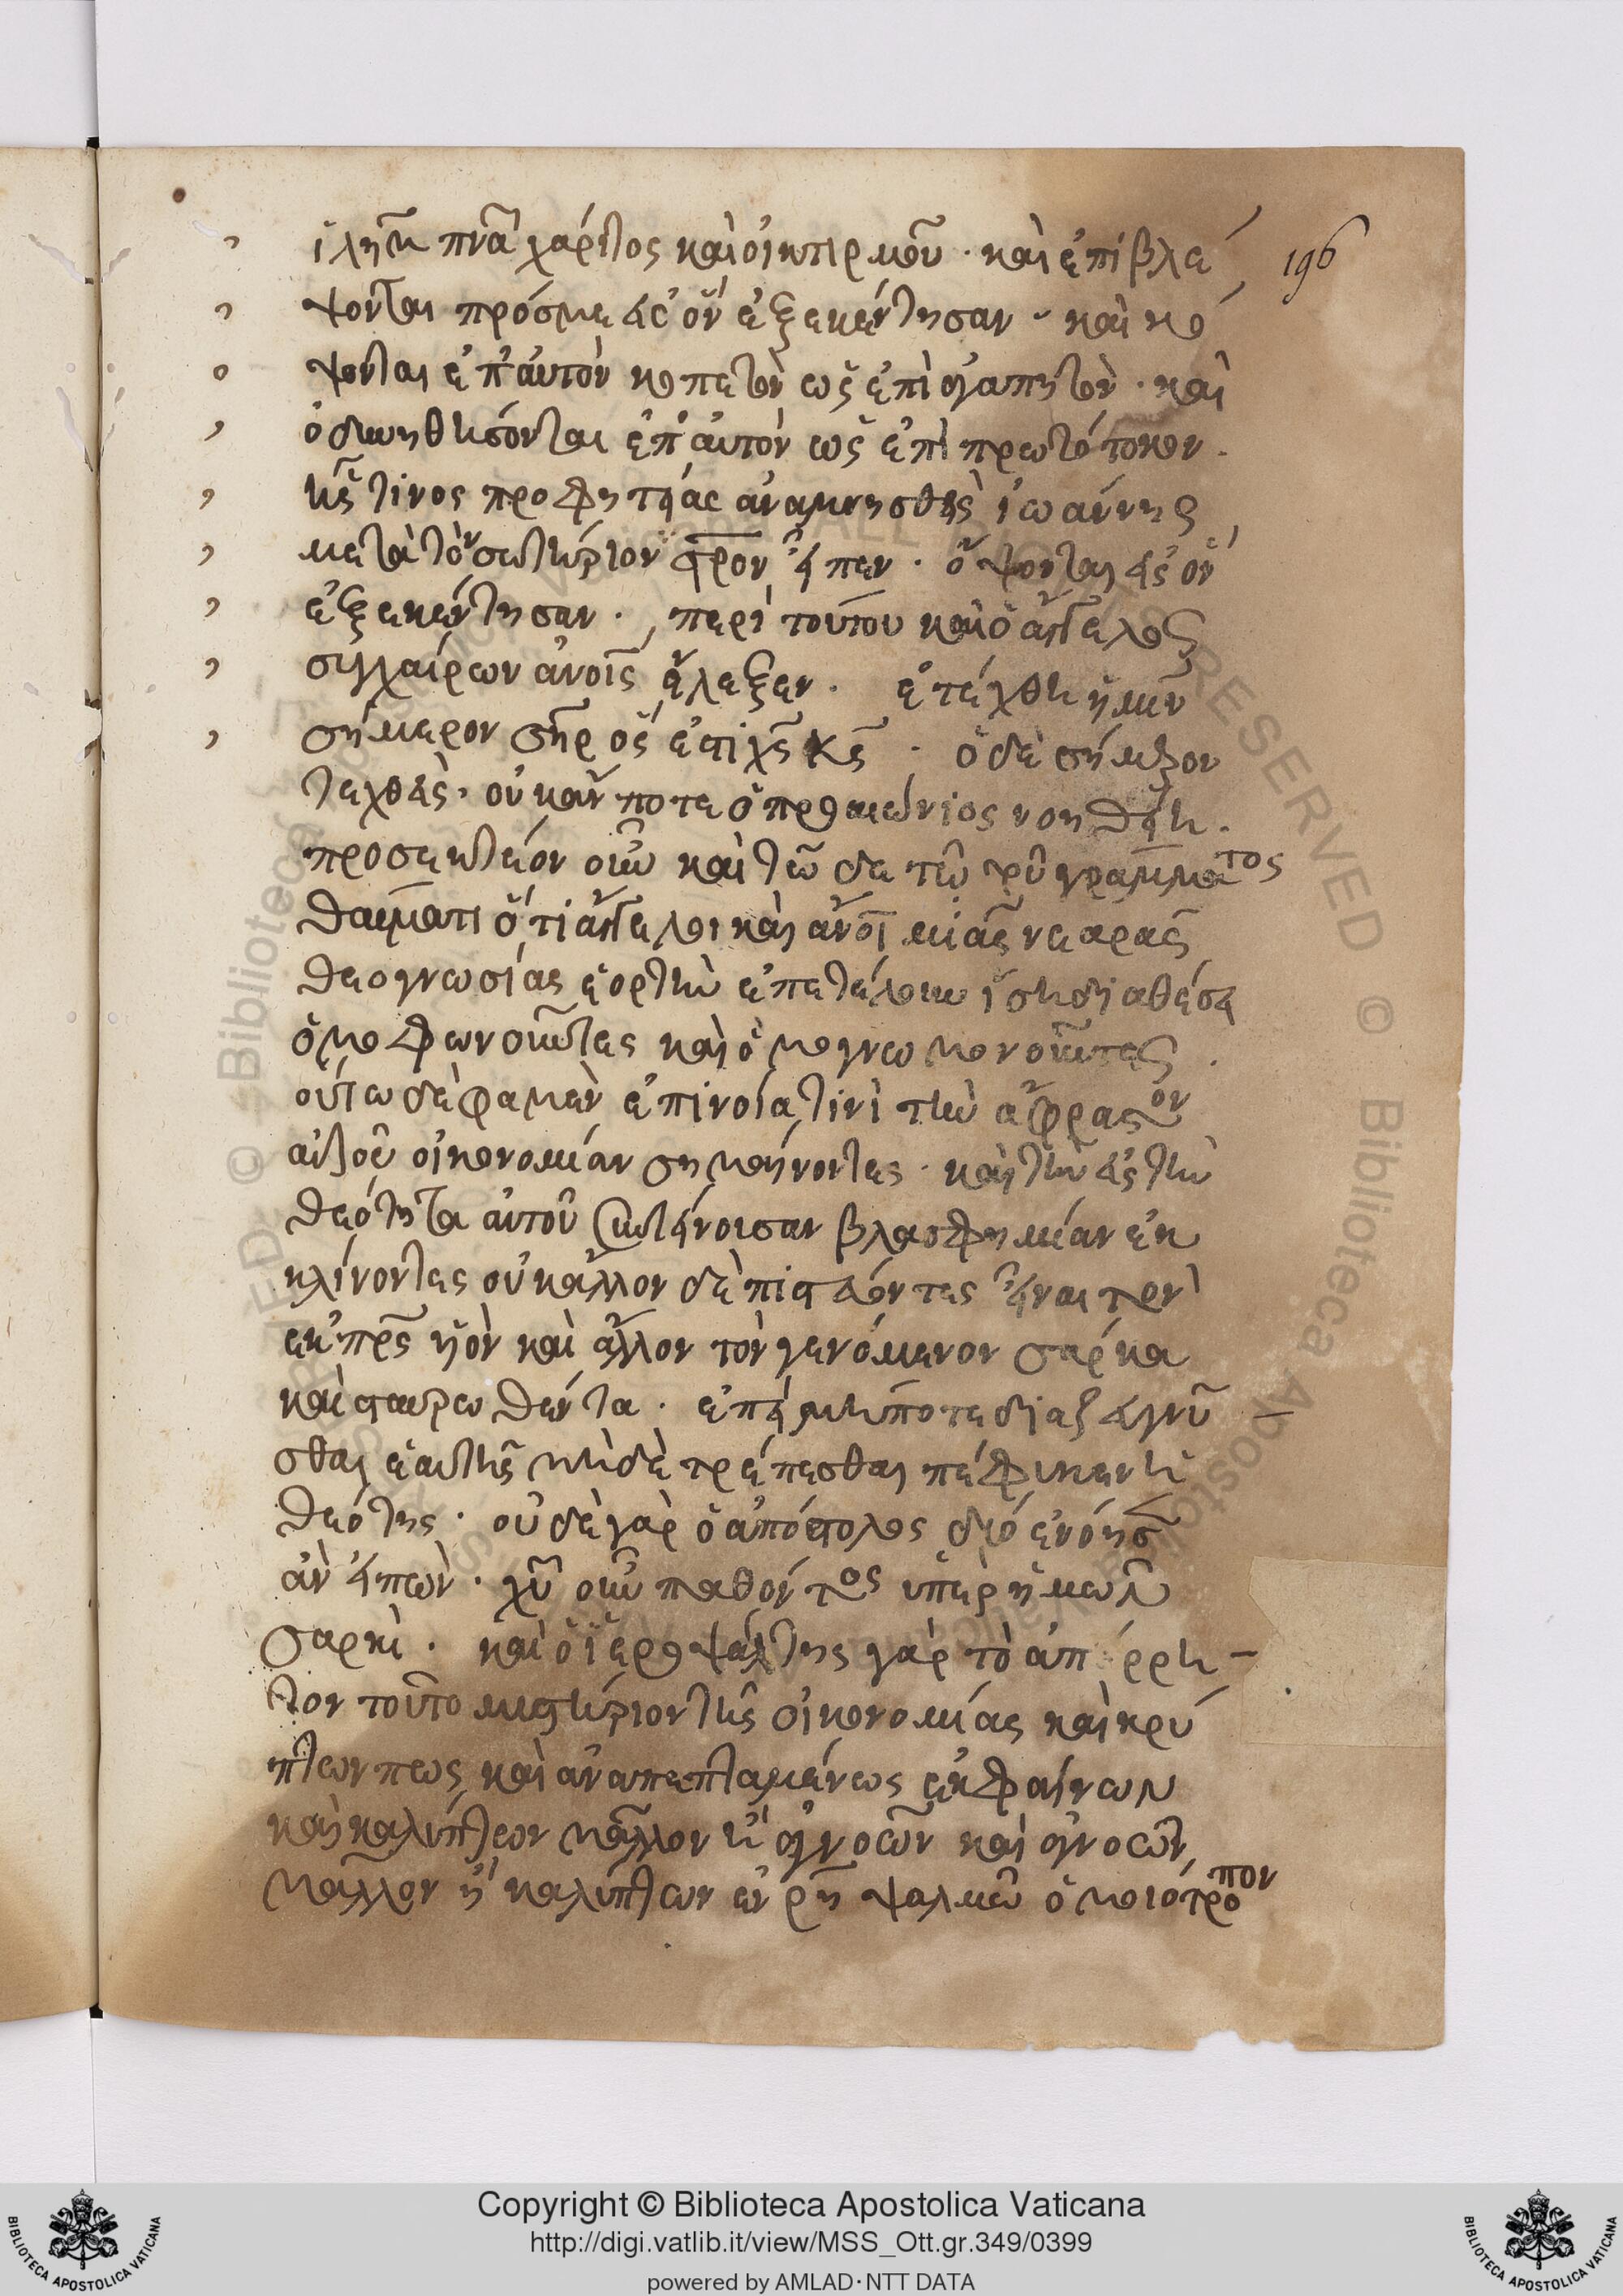 ἱλὴμ πνα χάριτος καὶ οἰκτιρμοῦ · καὶ ἐπιβλέ
196
ψονται πρός με εἰς ὃν ἐξεκέντησαν · καὶ κό
ψονται ἐπ' αὐτὸν κοπετὸν ὡς ἐπὶ ἀγαπητὸν · καὶ
ὀδυνηθήσονται ἐπ' αὐτὸν ὡς ἐπὶ πρωτότοκον ·
ἧς τινος προφητείας ἀναμνησθεὶς ἰωάννης
μετὰ τὸν σωτήριον στρον εἶπεν · ὄψονται εἰς ὃν
ἐξεκέντησαν · περὶ τούτου καὶ ὁ ἄγγελος
συγχαίρων ἀνοις ἔλεξεν · ἐτέχθη ἡμῖν
σήμερον σηρ ὅς ἐστι χς κς · ὁ δὲ σήμερον
τεχθεὶς · οὐκ ἄν ποτε ὁ προαιώνιος νοηθείη ·
προσεκτέον οὖν καὶ τῶδε τῶ τοῦ γράμματος
θαύματι ὅτι ἄγγελοι καὶ ἀνοι μιᾶς νεαρᾶς
θεογνωσίας ἑορτὴν ἐπετέλουν ἴση διαθέσει
ὁμοφωνοῦντες καὶ ὁμογνωμονοῦντες ·
οὕτω δέ φαμεν ἐπινοία τινὶ τὴν ἄφραστον
αὐτοῦ οἰκονομίαν σημαίνοντες · καὶ τὴν εἰς τὴν
θεότητα αὐτοῦ τείνουσαν βλασφημίαν ἐκ
κλίνοντες οὐκ ἄλλον δὲ πιστεύοντες εἶναι τὸν
ἐκ πρς υἱὸν καὶ ἄλλον τὸν γενόμενον σάρκα
καὶ σταυρωθέντα · ἐπεὶ μήποτε διαζεύγνυ
σθαι ἑαυτῆς μηδὲ τρέπεσθαι πέφυκεν ἡ
θεότης · οὐδὲ γὰρ ὁ ἀπόστολος δύο ἐνόησ
ἂν εἰπὼν · χυ οὖν παθόντος ὑπὲρ ἡμῶν
σαρκὶ · καὶ ὁ ἱεροψάλτης γὰρ τὸ ἀπόρρη
τον τοῦτο μυστήριον τῆς οἰκονομίας καὶ κρύ
πτων πως καὶ ἀναπεπταμένως ἐκφαίνων
καὶ καλύπτων μᾶλλον ἢ ἀγνοῶν καὶ ἀγνοῶν
μᾶλλον ἢ καλύπτων ἐν ρη ψαλμῶ ὁμοιότροπον
Copyright © Biblioteca Apostolica Vaticana
http://digi.vatlib.it/view/MSS_Ott.gr.349/0399
powered by AMLAD·NTT DATA
BIBLIOTECA APOSTOLICA VATICANA
BIBLIOTECA APOSTOLICA VATICANA